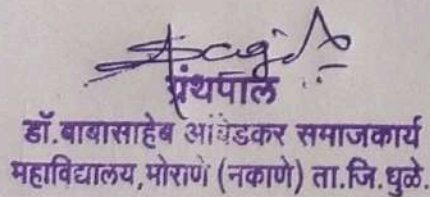 ग्रंथपाल
डॉ.बाबासाहेब आंबेडकर समाजकार्य
महाविद्यालय, मोराणे (नकाणे) ता.जि.धुळे.